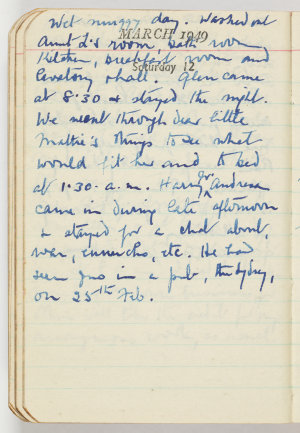 Wet muggy day. Washed out
MARCH 1949
Aunt L's room, bath room
Saturday 12
Kitchen, breakfast room and
lavatory & hall. Glen came
at 8.30 & stayed the night.
We went through dear little
Mattie's things to see what
would fit her and to bed
at 1.30. a.m. Harry Jr Andrews
came in during late afternoon
& stayed for a chat about,
war, etc. He had
seen Jno in a pub, Sydney,
on 25th Feb.